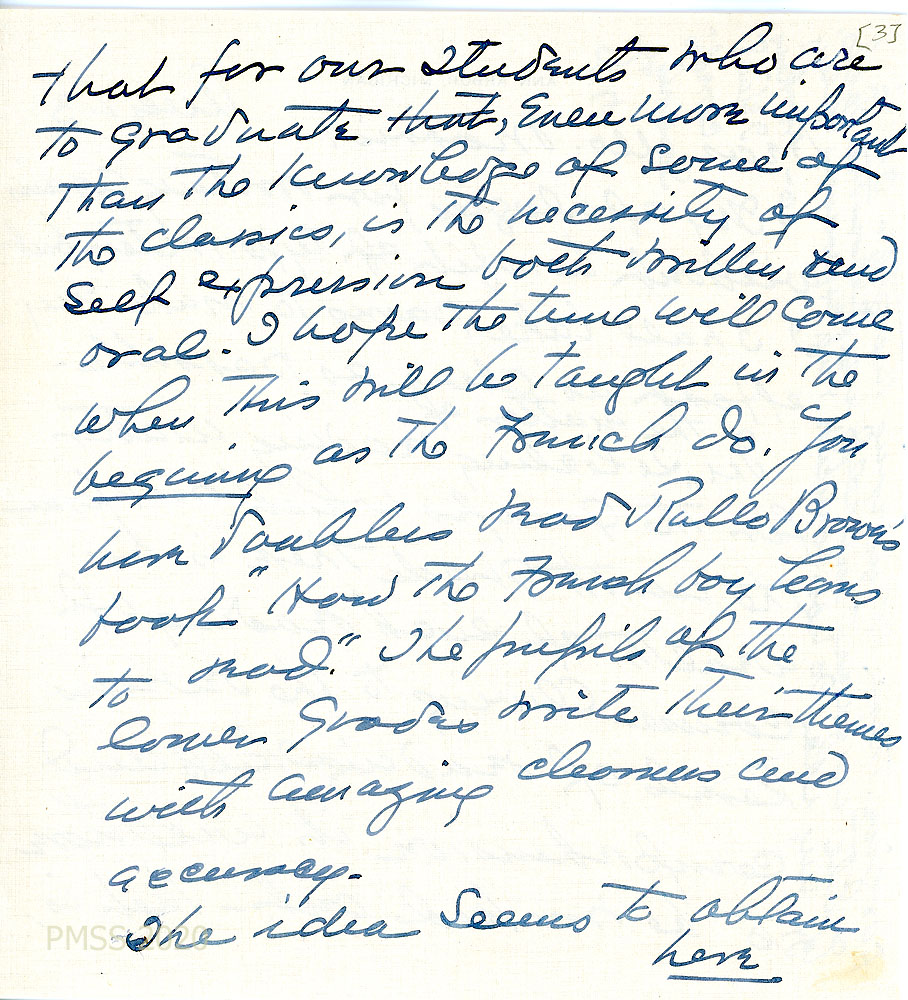 [3]
that for our students who are
to graduate that, Even more important
than the knowledge of some of
the classics, is the necessity of
self expression both written and
oral. I hope the time will come
when this will be taught in the
beginning as the French do. You
have doubtless read Rollo Brown's
book "How the French boy learns
to read." The pupils of the
lower grades write their themes
with amazing clearness and
accuracy.
The idea seems to obtain
here
PMSS 2020